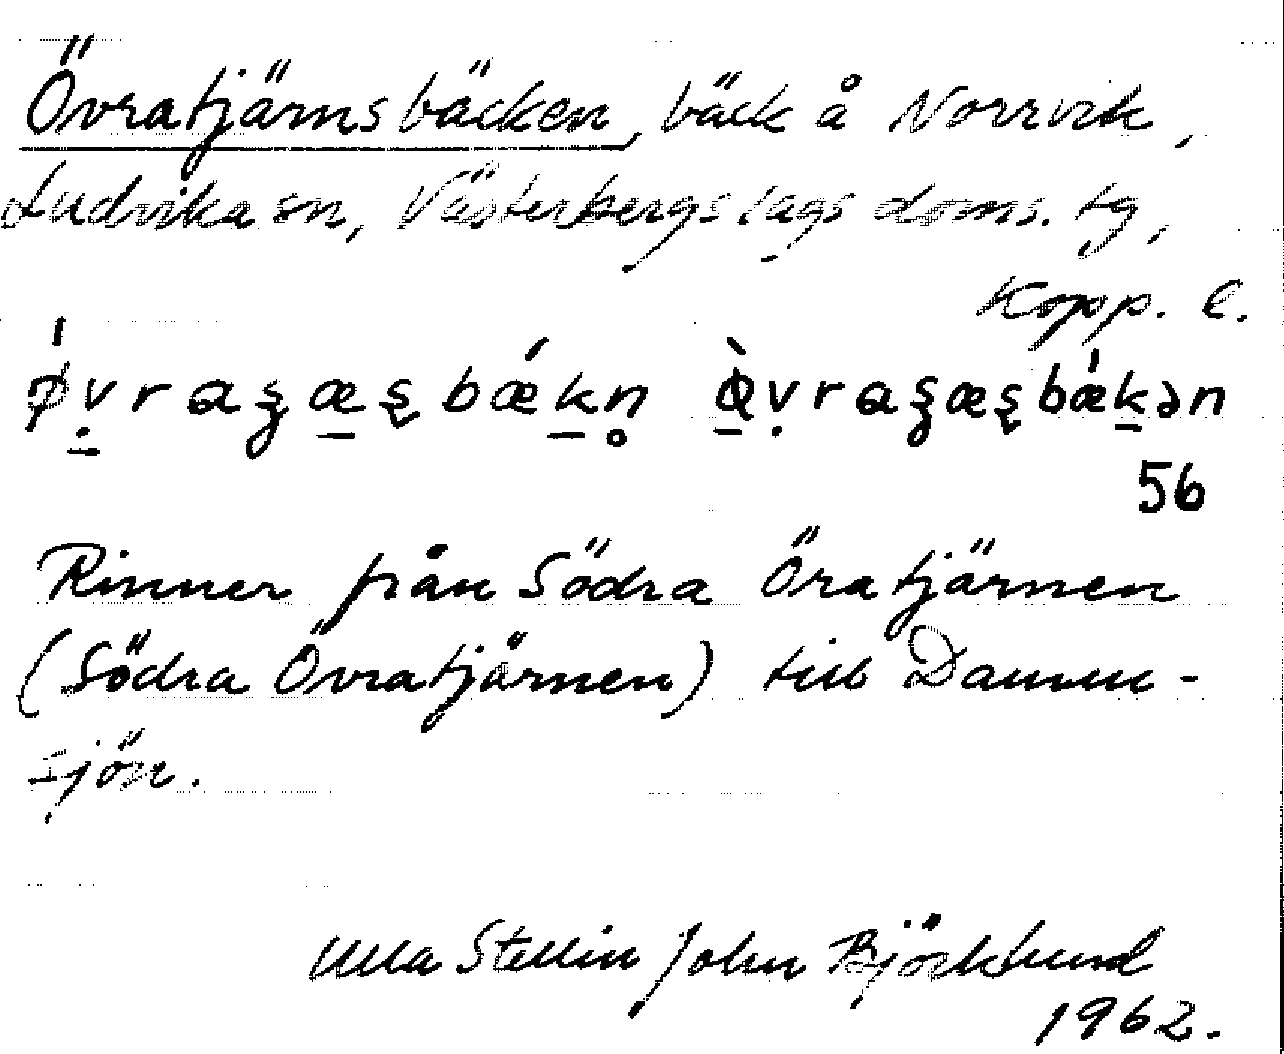 Övratjärnsbäcken, bäck å Norrvik,
Ludvika sn, Västerbergslags doms. tg,
Kopp. l.
56
Rinner från Södra Öratjärnen
(Södra Övratjärnen) till Damm-
sjön.
Ulla Stellin John Björklund
1962.